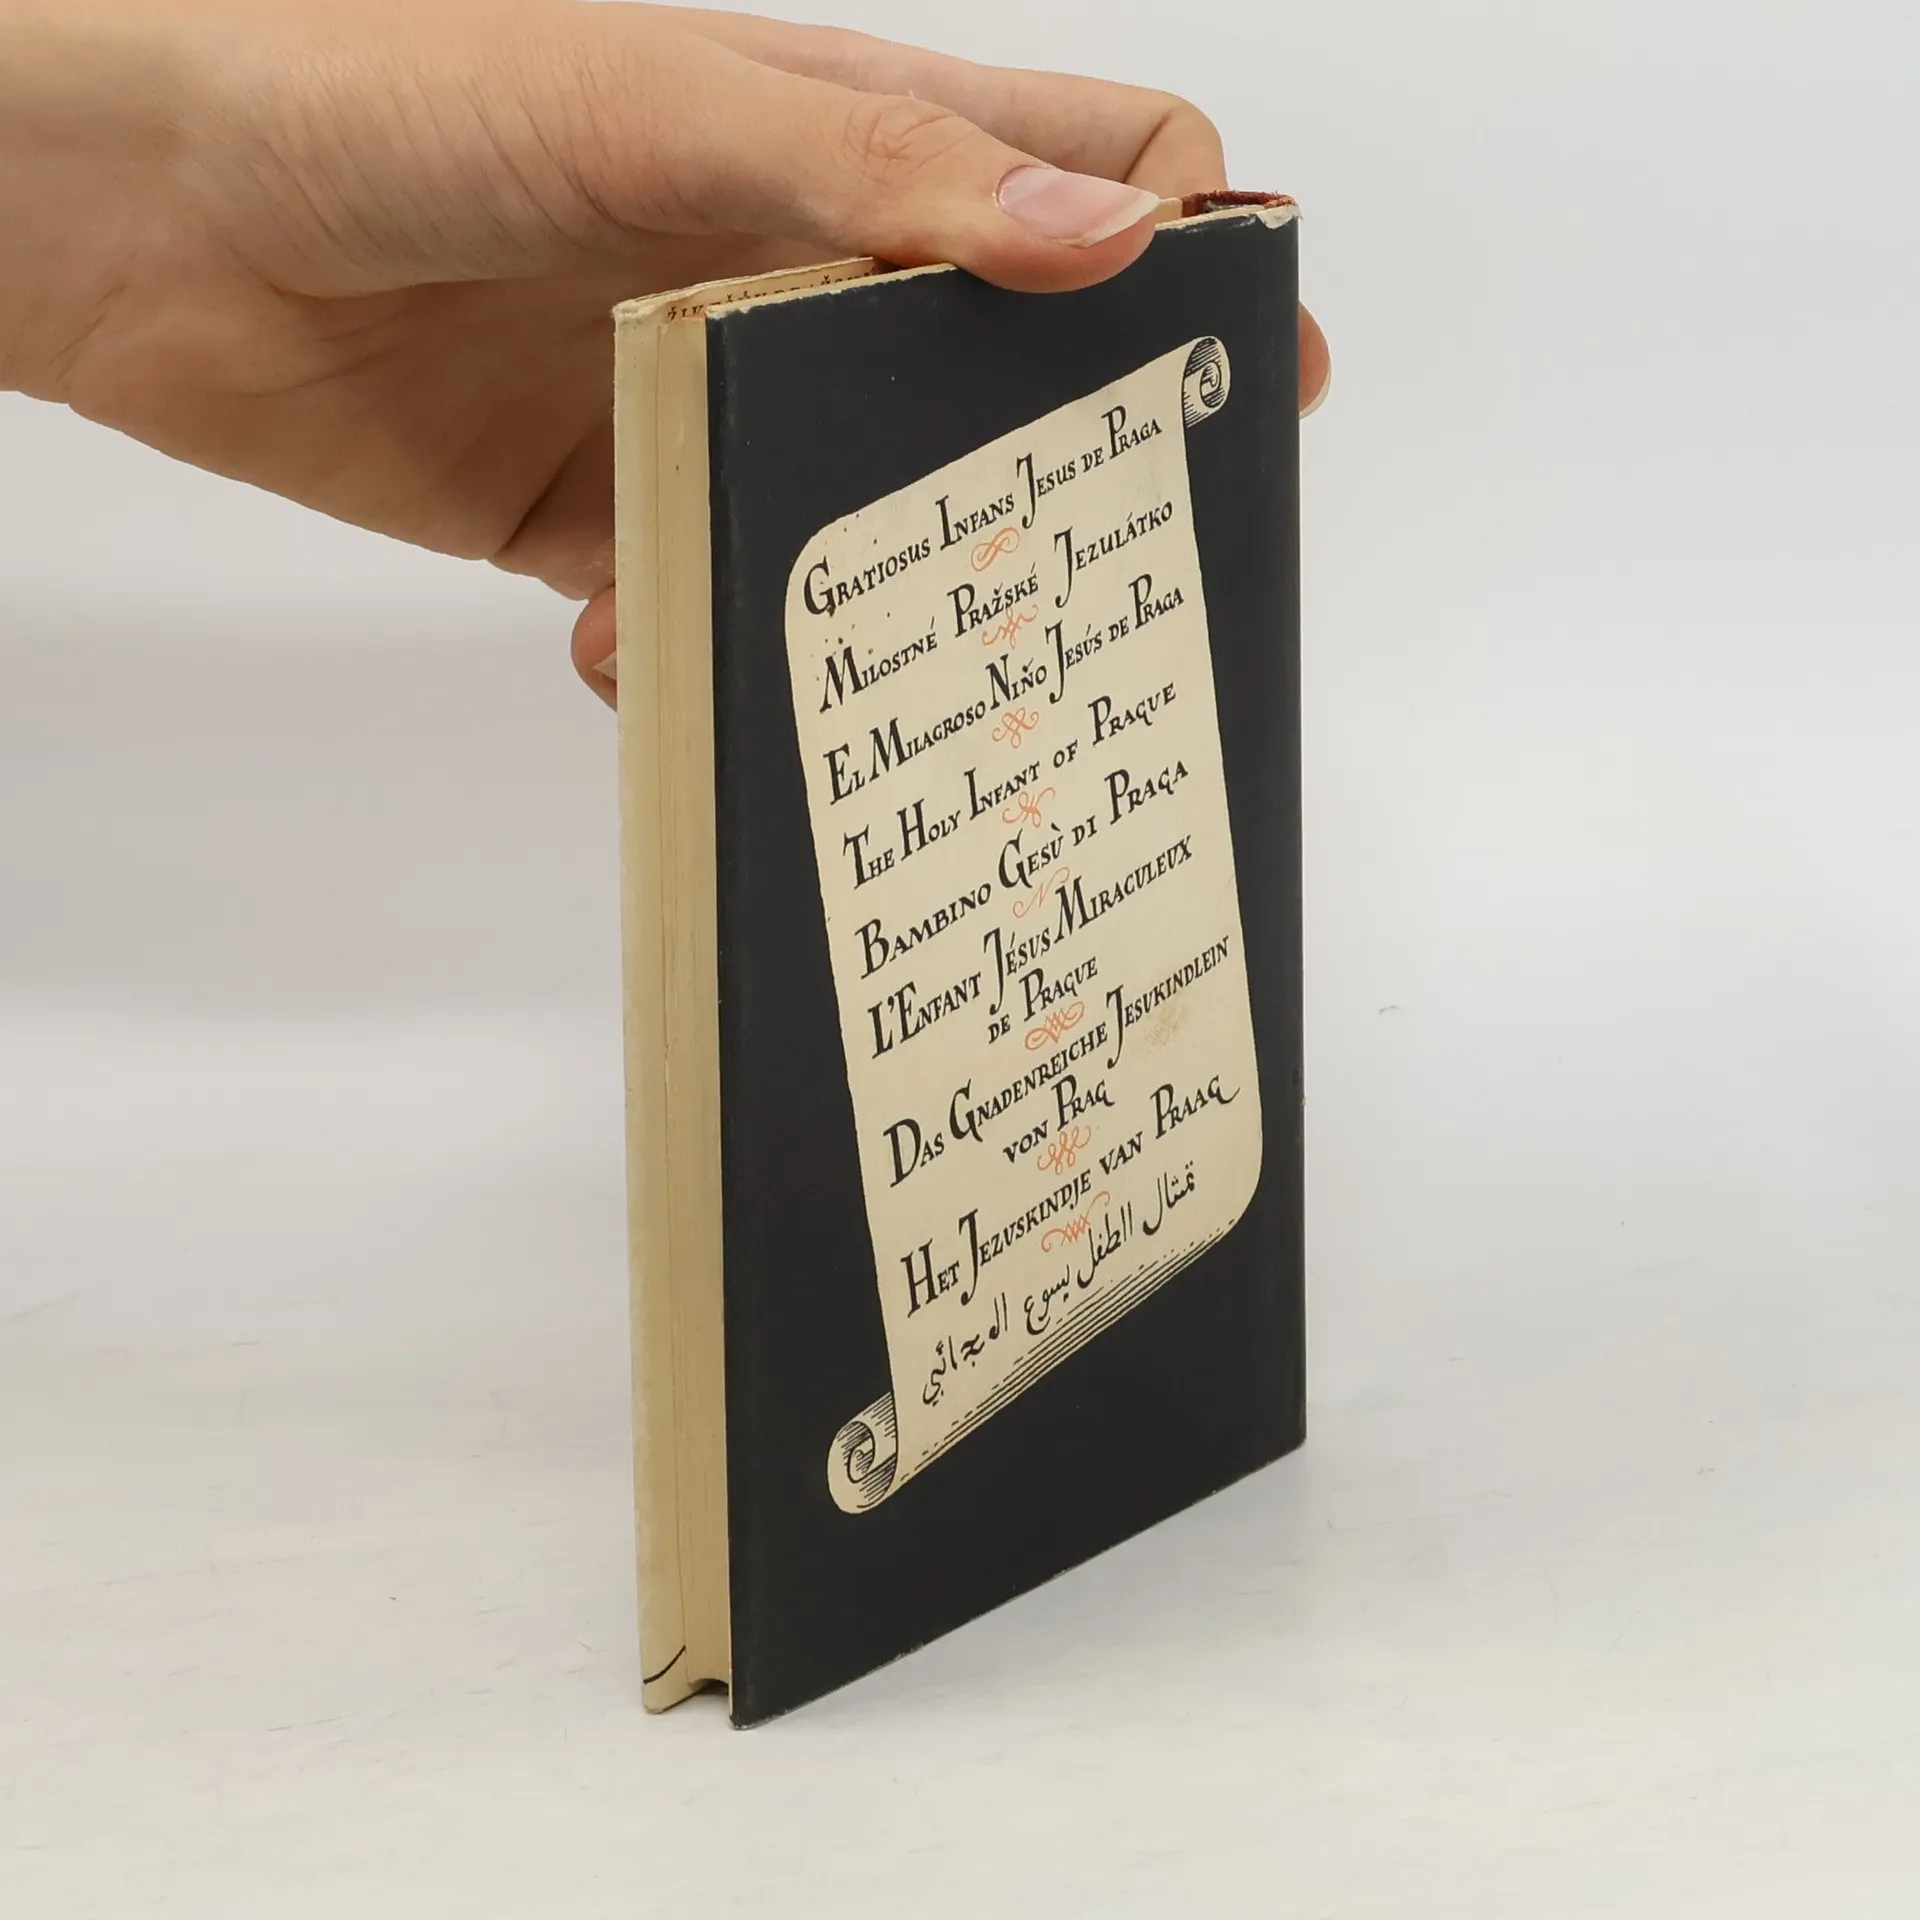 Gratiosus Infans Jesus de Praga
Milostné Pražské Jezulátko
El Milagroso Niño Jesús de Praga
The Holy Infant of Prague
Bambino Gesù di Praga
L'Enfant Jésus Miraculeux
de Prague
Das Gnadenreiche Jesukindlein
von Prag
Het Jezuskindje van Praag
تمثال الطفل يسوع العجائبي